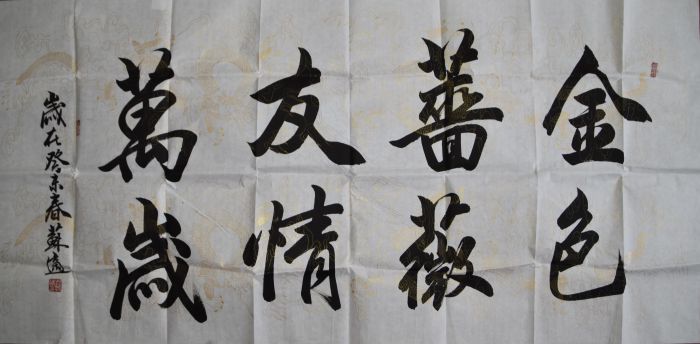 金色
薔薇
友情
萬歲
歲在癸未春蘇遠